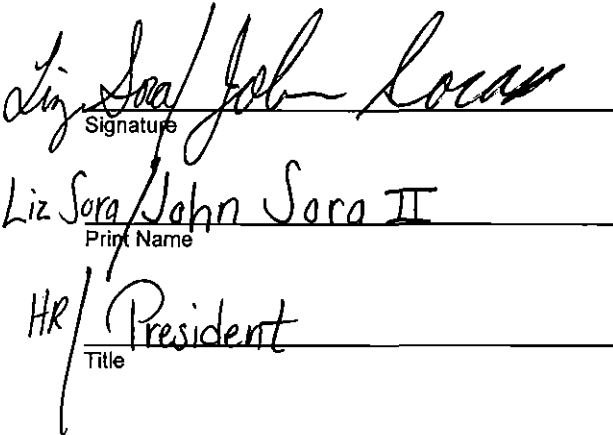 Liz Sora / John Sora
Signature
Liz Sora / John Sora II
Print Name
HR / President
Title